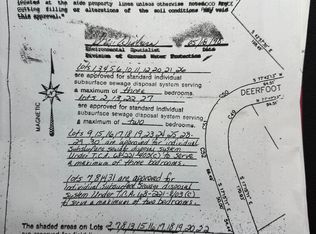 located at the side property lines unless otherwise noted. Any
cutting filling or alterations of the soil conditions may void
this approval."
Environmental Specialist Date
Division of Ground Water Protection
Lots 1,3,4,5,6,10,11,12,20,21,26
are approved for standard individual
subsurface sewage disposal system serving
a maximum of three bedrooms.
Lots 2,13,22,27
are approved for standard individual
subsurface sewage disposal system serving
a maximum of two bedrooms.
Lots 9,15,16,17,18,19,23,24,25,28-
29,30 are approved for individual
Subsurface sewage disposal system
Under T.C.A. 68-221-403(c) to serve
a maximum of three bedrooms.
Lots 7,8,14,31 are approved for
individual Subsurface Sewage disposal
System Under T.C.A. 68-221-403(c)
to serve a maximum of two bedrooms.
The shaded areas on Lots 2,7,8,13,15,16,17,18,19,20,22
MAGNETIC
DEERFOOT